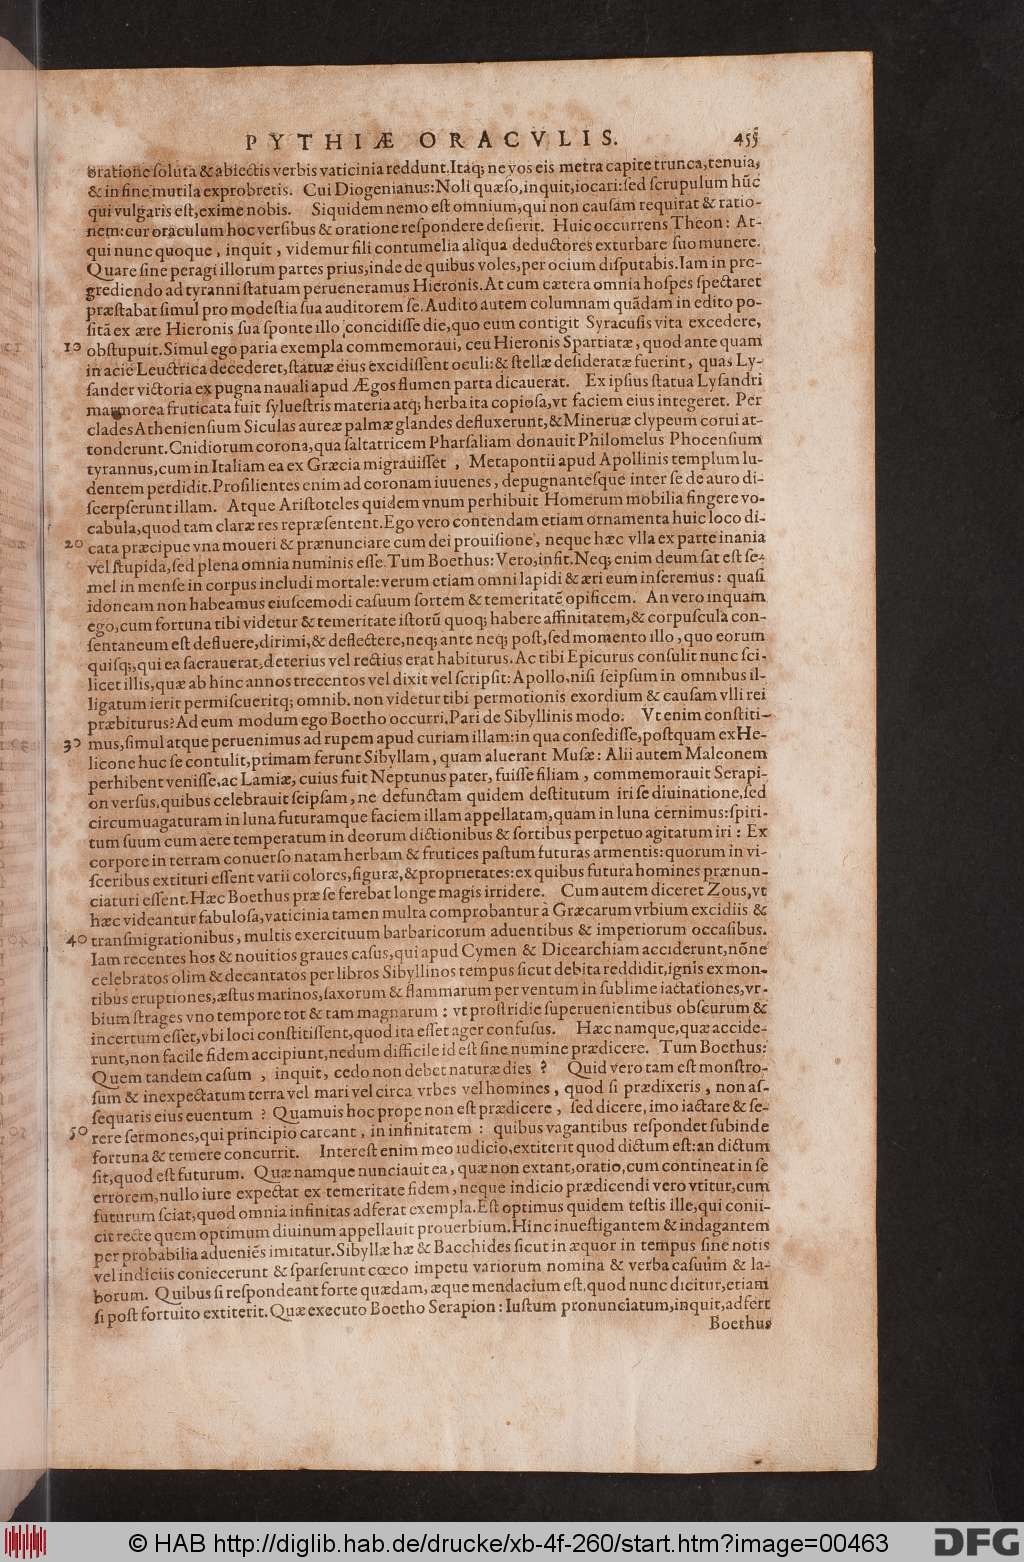 PYTHIÆ ORACVLIS. 455
oratione ſoluta & abiectis verbis vaticinia reddunt. Itaq; ne vos eis metra capite trunca, tenuia,
& in fine mutila exprobretis. Cui Diogenianus: Noli quæſo, inquit, iocari: ſed ſcrupulum hũc
qui vulgaris eſt, exime nobis. Siquidem nemo eſt omnium, qui non cauſam requirat & ratio-
nem: cur oraculum hoc verſibus & oratione reſpondere deſierit. Huic occurrens Theon: At-
qui nunc quoque, inquit, videmur fili contumelia aliqua deductores exturbare ſuo munere.
Quare ſine peragi illorum partes prius, inde de quibus voles, per ocium diſputabis. Iam in pro-
grediendo ad tyranni ſtatuam perueneramus Hieronis. At cum cætera omnia hoſpes ſpectaret
præſtabat ſimul pro modeſtia ſua auditorem ſe. Audito autem columnam quãdam in edito po-
ſitã ex ære Hieronis ſua ſponte illo concidiſſe die, quo eum contigit Syracuſis vita excedere,
10 obſtupuit. Simul ego paria exempla commemoraui, ceu Hieronis Spartiatæ, quod ante quam
in acie Leuctrica decederet, ſtatuæ eius excidiſſent oculi: & ſtellæ deſideratæ fuerint, quas Ly-
ſander victoria ex pugna nauali apud Ægos flumen parta dicauerat. Ex ipſius ſtatua Lyſandri
marmorea fruticata fuit ſylueſtris materia atq; herba ita copioſa, vt faciem eius integeret. Per
clades Athenienſium Siculas aureæ palmæ glandes defluxerunt, & Mineruæ clypeum corui at-
tonderunt. Cnidiorum corona, qua ſaltatricem Pharſaliam donauit Philomelus Phocenſium
tyrannus, cum in Italiam ea ex Græcia migrauiſſet, Metapontii apud Apollinis templum lu-
dentem perdidit. Proſilientes enim ad coronam iuuenes, depugnantesque inter ſe de auro di-
ſcerpſerunt illam. Atque Ariſtoteles quidem vnum perhibuit Homerum mobilia fingere vo-
cabula, quod tam claræ res repræſentent. Ego vero contendam etiam ornamenta huic loco di-
20 cata præcipue vna moueri & prænunciare cum dei prouiſione, neque hæc vlla ex parte inania
vel ſtupida, ſed plena omnia numinis eſſe. Tum Boethus: Vero, infit. Neq; enim deum ſat eſt ſe-
mel in menſe in corpus includi mortale: verum etiam omni lapidi & æri eum inſeremus: quaſi
idoneam non habeamus eiuſcemodi caſuum ſortem & temeritatẽ opificem. An vero inquam
ego, cum fortuna tibi videtur & temeritate iſtorũ quoq; habere affinitatem, & corpuſcula con-
ſentaneum eſt defluere, dirimi, & deflectere, neq; ante neq; poſt, ſed momento illo, quo eorum
quiſq;, qui ea ſacrauerat, deterius vel rectius erat habiturus. Ac tibi Epicurus conſulit nunc ſci-
licet illis, quæ ab hinc annos trecentos vel dixit vel ſcripſit: Apollo, niſi ſeipſum in omnibus il-
ligatum ierit permiſcueritq; omnib. non videtur tibi permotionis exordium & cauſam vlli rei
præbiturus? Ad eum modum ego Boetho occurri. Pari de Sibyllinis modo. Vt enim conſtiti-
30 mus, ſimul atque peruenimus ad rupem apud curiam illam: in qua conſediſſe, poſtquam ex He-
licone huc ſe contulit, primam ferunt Sibyllam, quam aluerant Muſæ: Alii autem Maleonem
perhibent veniſſe, ac Lamiæ, cuius fuit Neptunus pater, fuiſſe filiam, commemorauit Serapi-
on verſus, quibus celebrauit ſeipſam, ne defunctam quidem deſtitutum iri ſe diuinatione, ſed
circumuagaturam in luna futuramque faciem illam appellatam, quam in luna cernimus: ſpiri-
tum ſuum cum aere temperatum in deorum dictionibus & ſortibus perpetuo agitatum iri: Ex
corpore in terram conuerſo natam herbam & frutices paſtum futuras armentis: quorum in vi-
ſceribus extituri eſſent varii colores, figuræ, & proprietates: ex quibus futura homines prænun-
ciaturi eſſent. Hæc Boethus præ ſe ferebat longe magis irridere. Cum autem diceret Zous, vt
hæc videantur fabuloſa, vaticinia tamen multa comprobantur à Græcarum vrbium excidiis &
40 tranſmigrationibus, multis exercituum barbaricorum aduentibus & imperiorum occaſibus.
Iam recentes hos & nouitios graues caſus, qui apud Cymen & Dicearchiam acciderunt, nõne
celebratos olim & decantatos per libros Sibyllinos tempus ſicut debita reddidit, ignis ex mon-
tibus eruptiones, æſtus marinos, ſaxorum & flammarum per ventum in ſublime iactationes, vr-
bium ſtrages vno tempore tot & tam magnarum: vt proſtridie ſuperuenientibus obſcurum &
incertum eſſet, vbi loci conſtitiſſent, quod ita eſſet ager confuſus. Hæc namque, quæ accide-
runt, non facile fidem accipiunt, nedum difficile id eſt ſine numine prædicere. Tum Boethus:
Quem tandem caſum, inquit, cedo non debet naturæ dies? Quid vero tam eſt monſtro-
ſum & inexpectatum terra vel mari vel circa vrbes vel homines, quod ſi prædixeris, non aſ-
ſequaris eius euentum? Quamuis hoc prope non eſt prædicere, ſed dicere, imo iactare & ſe-
50 rere ſermones, qui principio careant, in infinitatem: quibus vagantibus reſpondet ſubinde
fortuna & temere concurrit. Intereſt enim meo iudicio, extiterit quod dictum eſt: an dictum
ſit, quod eſt futurum. Quæ namque nunciauit ea, quæ non extant, oratio, cum contineat in ſe
errorem, nullo iure expectat ex temeritate fidem, neque indicio prædicendi vero vtitur, cum
futurum ſciat, quod omnia infinitas adferat exempla. Eſt optimus quidem teſtis ille, qui conii-
cit recte quem optimum diuinum appellauit prouerbium. Hinc inueſtigantem & indagantem
per probabilia adueniẽs imitatur. Sibyllæ hæ & Bacchides ſicut in æquor in tempus ſine notis
vel indiciis coniecerunt & ſparſerunt cœco impetu variorum nomina & verba caſuum & la-
borum. Quibus ſi reſpondeant forte quædam, æque mendacium eſt, quod nunc dicitur, etiam
ſi poſt fortuito extiterit. Quæ executo Boetho Serapion: Iuſtum pronunciatum, inquit, ad fert
Boethus
© HAB http://diglib.hab.de/drucke/xb-4f-260/start.htm?image=00463
DFG